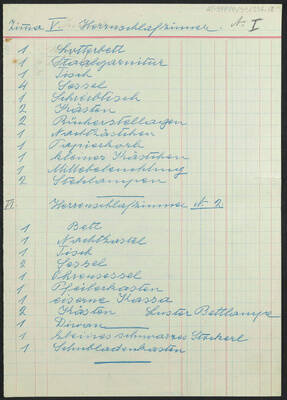 Zimmer V. Herrenschlafzimmer. No I
1 Schottbett
1 Staalgarnitur
1 Tisch
4 Sessel
1 Schreibtisch
2 Kästen
2 Bücherstellagen
1 Nachtkästchen
1 Papierkorb
1 kleines Kästchen
1 Mittebeleuchtung
2 Stehlampen
VI. Herrenschlafzimmer No 2
1 Bett
1 Nachtkastel
1 Tisch
2 Sessel
1 Ohrensessel
1 Pfeilerkasten
1 eiserne Kassa
2 Kästen Luster Bettlampe
1 Diwan
1 kleines schwarzes Stockerl
1 Schubladenkasten